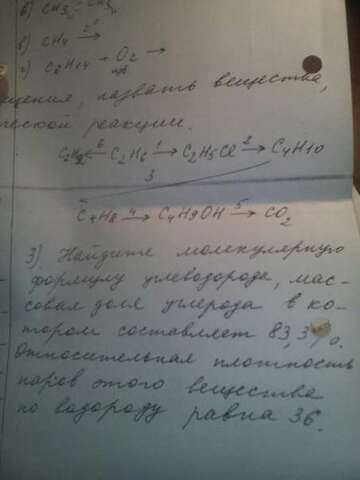 б) CH4 t° →
г) C2H14 + O2 →
щения, назвать вещества,
ческой реакции.
C2H2 ←6 C2H6 1→ C2H5Cl 2→ C4H10
3
C4H8 4→ C4H9OH 5→ CO2
3) Найдите молекулярную
формулу углеводорода, мас-
совая доля углерода в ко-
тором составляет 83,3%.
Относительная плотность
паров этого вещества
по водороду равна 36.